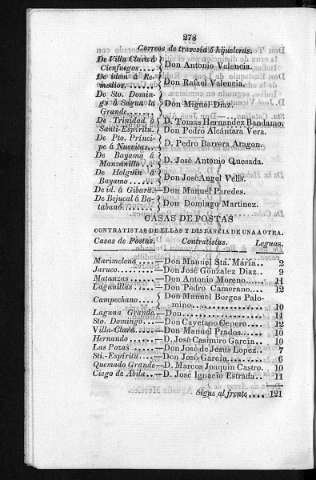 278
Correos de travesía ó hijueleros.
De Villa Clara á
Cienfuegos.... Don Antonio Valencia.
De idem á Re-
medios....... Don Rafael Valencia.
De Sto. Domin-
go á Sagua la
Grande....... Don Miguel Diaz.
De Trinidad á D. Tomas Hernandez Bandamo.
Santi-Espíritu. Don Pedro Alcántara Vera.
De Pto. Prínci-
pe á Nuevitas.. D. Pedro Barrera Aragon.
De Bayamo á
Manzanillo... D. José Antonio Quesada.
De Holguin á
Bayamo...... Don José Angel Veliz.
De id. á Gibara: Don Manuel Paredes.
De Bejucal á Ba-
tabanó........ Don Domingo Martinez.
CASAS DE POSTAS
CONTRATISTAS DE ELLAS Y DISTANCIA DE UNA A OTRA.
Casas de Postas. Contratistas. Leguas.
Marimelena ----Don Manuel Sta. María.. 2
Jaruco.........--Don José Gonzalez Diaz.. 9
Matanzas......--Don Antonio Moreno.... 11
Lagunillas.....--Don Pedro Camerano... 12
Campechano... Don Manuel Borges Palo-
mino.............. 10
Laguna Grande.-Don................ 11
Sto. Domingo..--Don Cayetano Cepero... 12
Villa-Clara....--Don Manuel Prados.... 10
Hernando......--Don José Casimiro Garcia.. 10
Las Pozas .....--Don José de Jesus Lopez.. 7
Sti.-Espíritu...--Don José Garcia........ 7
Quemado Grande--D. Marcos Joaquin Castro. 10
Ciego de Avila..--D. José Ignacio Estrada... 11
Sigue al frente.... 121